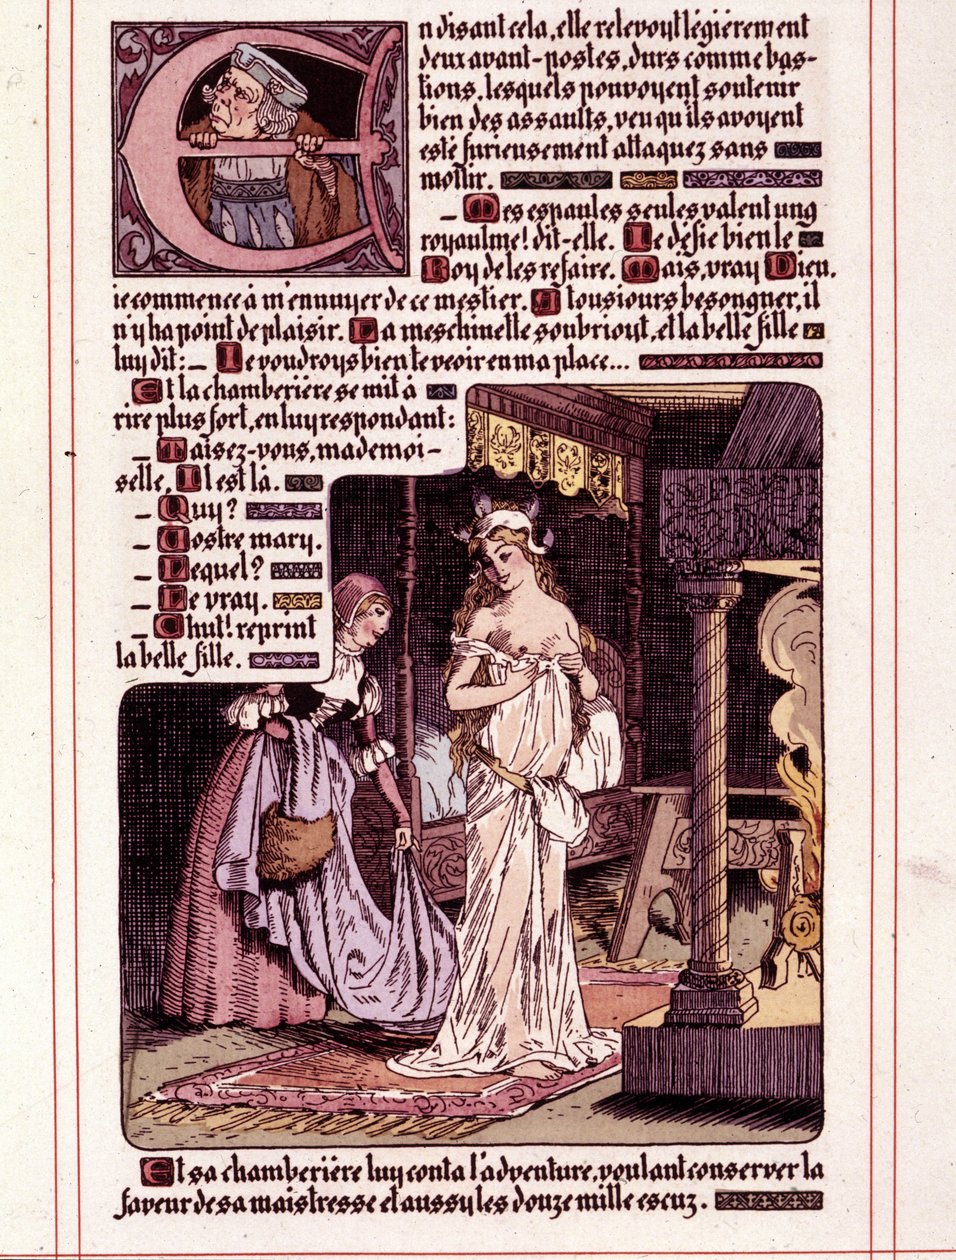 En disant cela, elle relevoyt légiérement
deux avant-postes, durs comme bas-
tions, lesquels pouvoyent soutenir
bien des assaults, veu qu'ils avoyent
esté furieusement attaquez sans
mollir.
– Mes espaules seules valent ung
royaulme! dit-elle. Ie défie bien le
Roy de les refaire. Mais, vray Dieu,
ie commence à m'ennuyer de ce mestier. A tousiours besongner, il
n'y ha point de plaisir. La meschinette soubriout, et la belle fille
luy dit: – Ie voudroys bien te veoir en ma place...
Et la chamberiére se mit à
rire plus fort, en luy respondant:
– Taisez-vous, mademoi-
selle, Il est là.
– Quy?
– Vostre mary.
– Lequel?
– Le vray.
– Chut! reprint
la belle fille.
Et sa chamberiére luy conta l'adventure, voulant conserver la
faveur de sa maistresse et aussy les douze mille escuz.